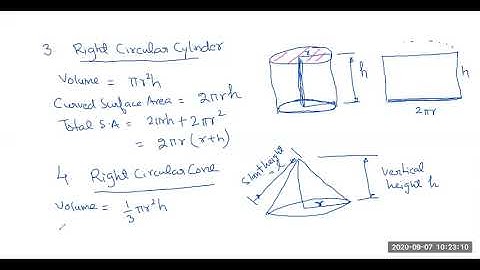 3. Right Circular Cylinder
Volume = πr²h
Curved Surface Area = 2πrh
Total S.A = 2πrh + 2πr²
= 2πr (r+h)
r
h
h
2πr
4. Right Circular Cone
Volume = 1/3 πr²h
Slant height = l
r
vertical height h
2020-09-07 10:23:10